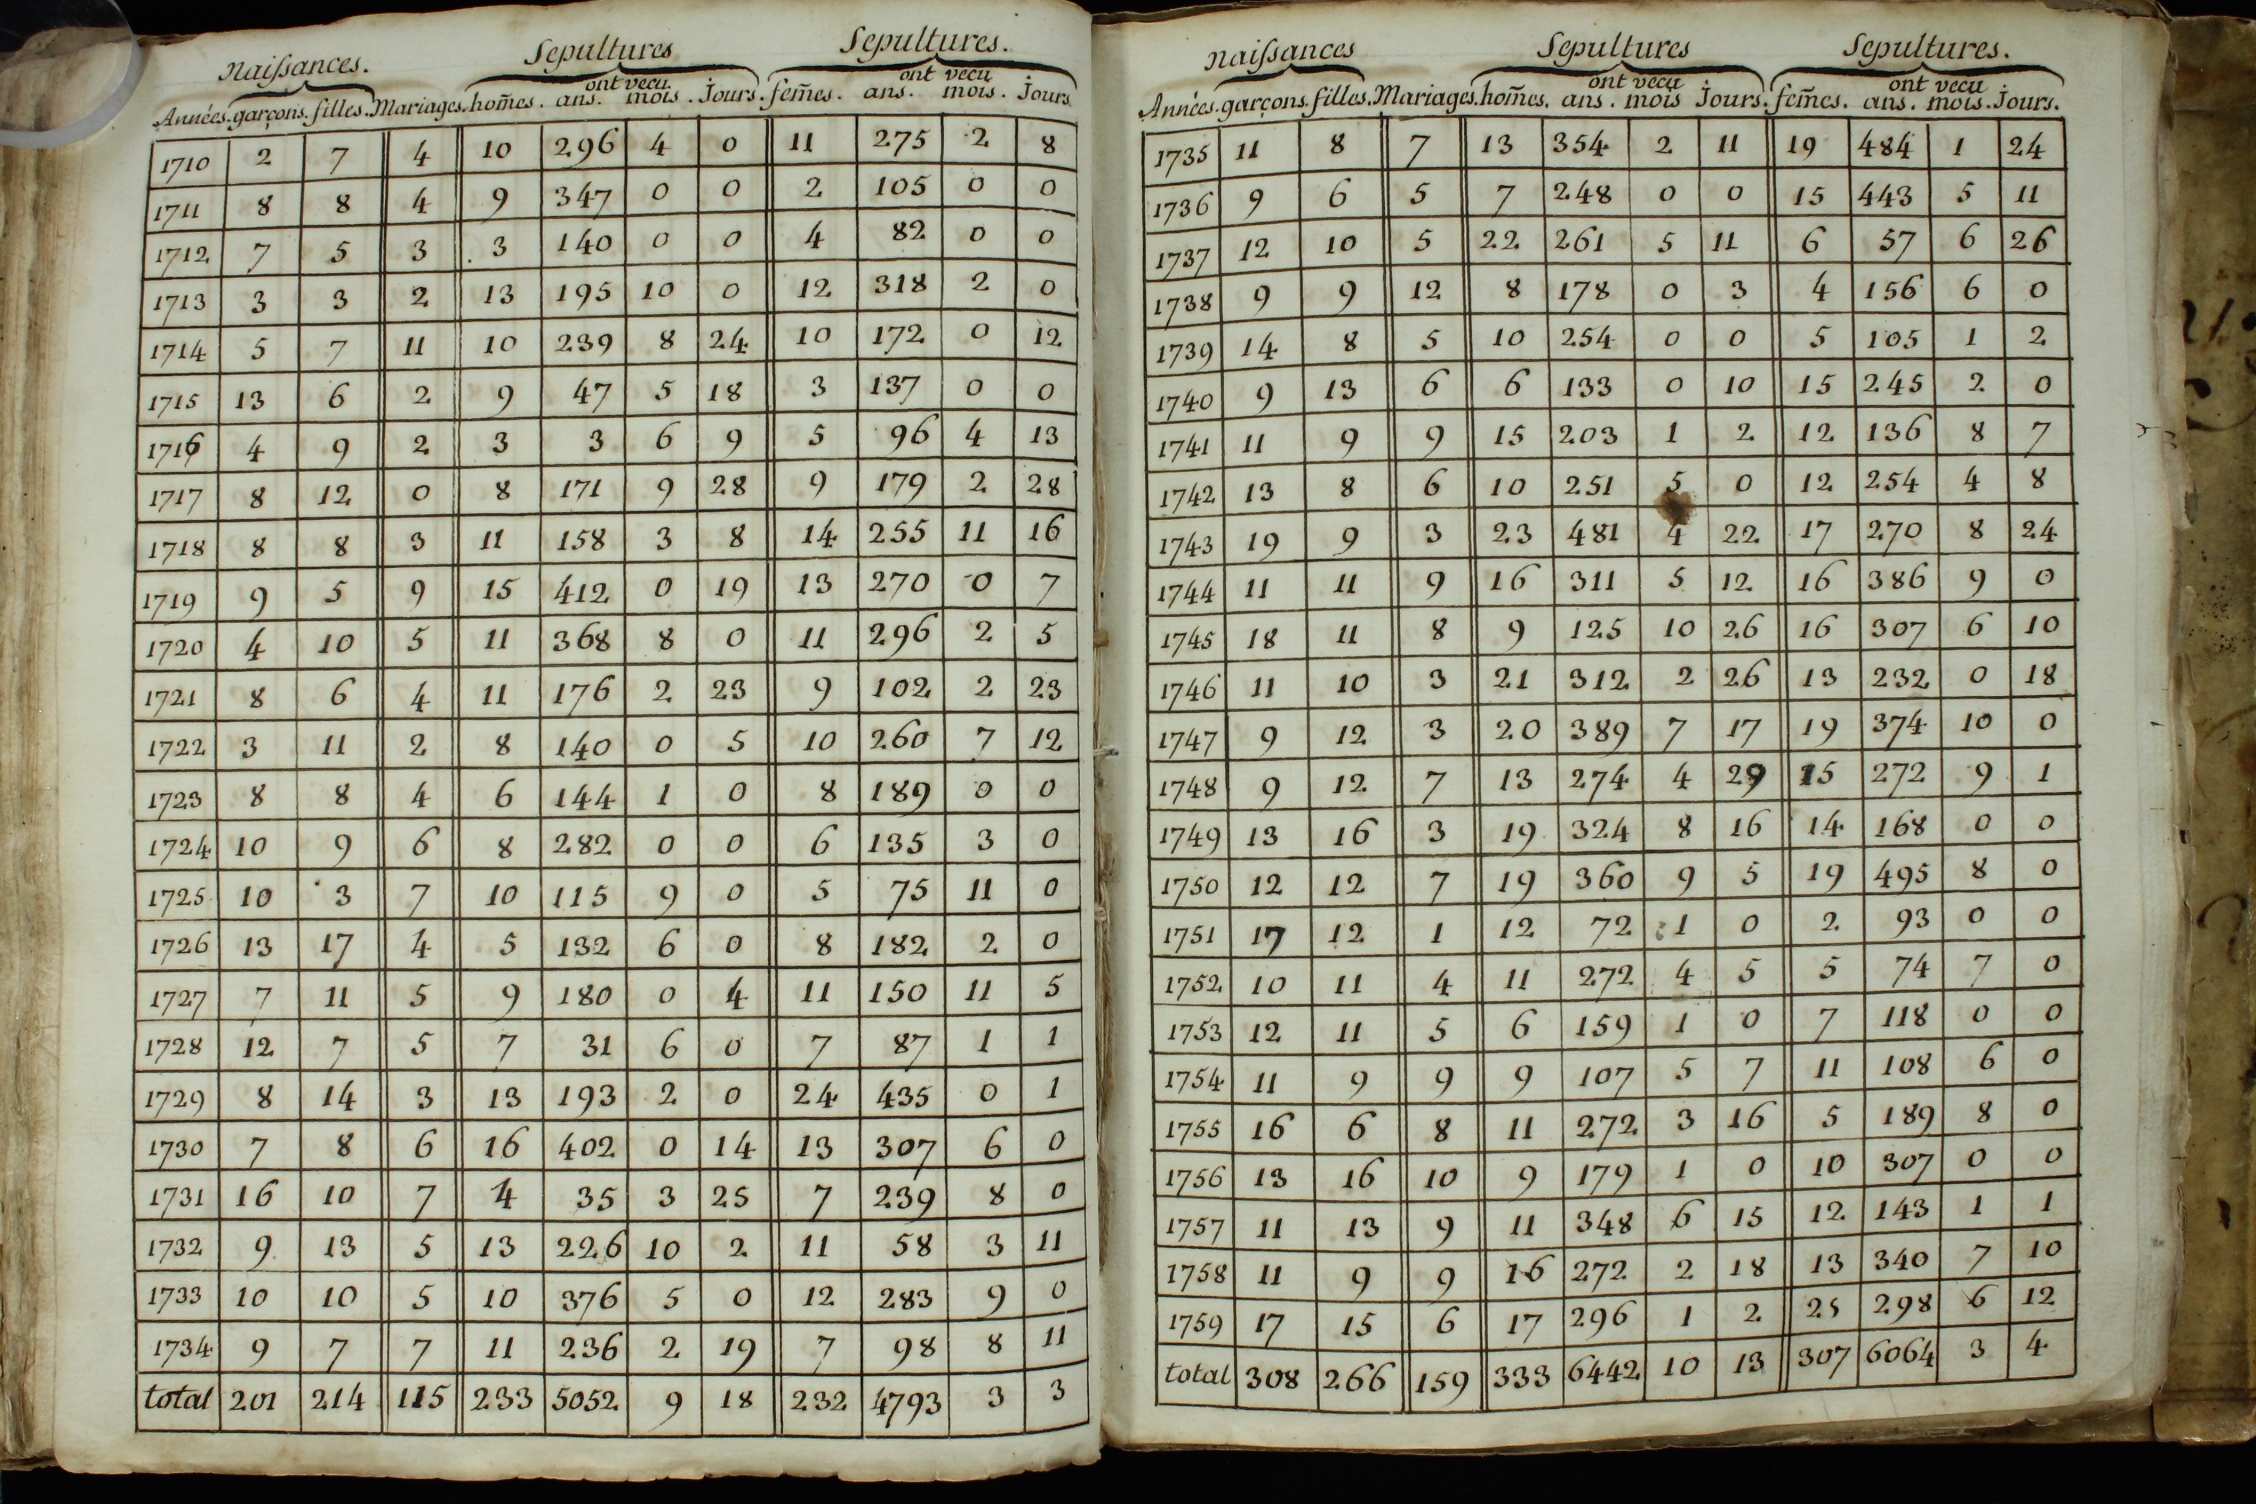 Naissances. Sepultures Sepultures.
ont vecu ont vecu
Années. garçons. filles. Mariages. hom̃es. ans. mois. Jours. fem̃es. ans. mois. Jours
1710 2 7 4 10 296 4 0 11 275 2 8
1711 8 8 4 9 347 0 0 2 105 0 0
1712 7 5 3 3 140 0 0 4 82 0 0
1713 3 3 2 13 195 10 0 12 318 2 0
1714 5 7 11 10 239 8 24 10 172 0 12
1715 13 6 2 9 47 5 18 3 137 0 0
1716 4 9 2 3 3 6 9 5 96 4 13
1717 8 12 0 8 171 9 28 9 179 2 28
1718 8 8 3 11 158 3 8 14 255 11 16
1719 9 5 9 15 412 0 19 13 270 0 7
1720 4 10 5 11 368 8 0 11 296 2 5
1721 8 6 4 11 176 2 23 9 102 2 23
1722 3 11 2 8 140 0 5 10 260 7 12
1723 8 8 4 6 144 1 0 8 189 0 0
1724 10 9 6 8 282 0 0 6 135 3 0
1725 10 3 7 10 115 9 0 5 75 11 0
1726 13 17 4 5 132 6 0 8 182 2 0
1727 7 11 5 9 180 0 4 11 150 11 5
1728 12 7 5 7 31 6 0 7 87 1 1
1729 8 14 3 13 193 2 0 24 435 0 1
1730 7 8 6 16 402 0 14 13 307 6 0
1731 16 10 7 4 35 3 25 7 239 8 0
1732 9 13 5 13 226 10 2 11 58 3 11
1733 10 10 5 10 376 5 0 12 283 9 0
1734 9 7 7 11 236 2 19 7 98 8 11
total 201 214 115 233 5052 9 18 232 4793 3 3
Naissances Sepultures Sepultures.
ont vecu ont vecu
Années. garçons. filles. Mariages. hom̃es. ans. mois Jours. fem̃es. ans. mois. Jours.
1735 11 8 7 13 354 2 11 19 484 1 24
1736 9 6 5 7 248 0 0 15 443 5 11
1737 12 10 5 22 261 5 11 6 57 6 26
1738 9 9 12 8 178 0 3 4 156 6 0
1739 14 8 5 10 254 0 0 5 105 1 2
1740 9 13 6 6 133 0 10 15 245 2 0
1741 11 9 9 15 203 1 2 12 136 8 7
1742 13 8 6 10 251 5 0 12 254 4 8
1743 19 9 3 23 481 4 22 17 270 8 24
1744 11 11 9 16 311 5 12 16 386 9 0
1745 18 11 8 9 125 10 26 16 307 6 10
1746 11 10 3 21 312 2 26 13 232 0 18
1747 9 12 3 20 389 7 17 19 374 10 0
1748 9 12 7 13 274 4 29 15 272 9 1
1749 13 16 3 19 324 8 16 14 168 0 0
1750 12 12 7 19 360 9 5 19 495 8 0
1751 17 12 1 12 72 1 0 2 93 0 0
1752 10 11 4 11 272 4 5 5 74 7 0
1753 12 11 5 6 159 1 0 7 118 0 0
1754 11 9 9 9 107 5 7 11 108 6 0
1755 16 6 8 11 272 3 16 5 189 8 0
1756 13 16 10 9 179 1 0 10 307 0 0
1757 11 13 9 11 348 6 15 12 143 1 1
1758 11 9 9 16 272 2 18 13 340 7 10
1759 17 15 6 17 296 1 2 25 298 6 12
total 308 266 159 333 6442 10 13 307 6064 3 4